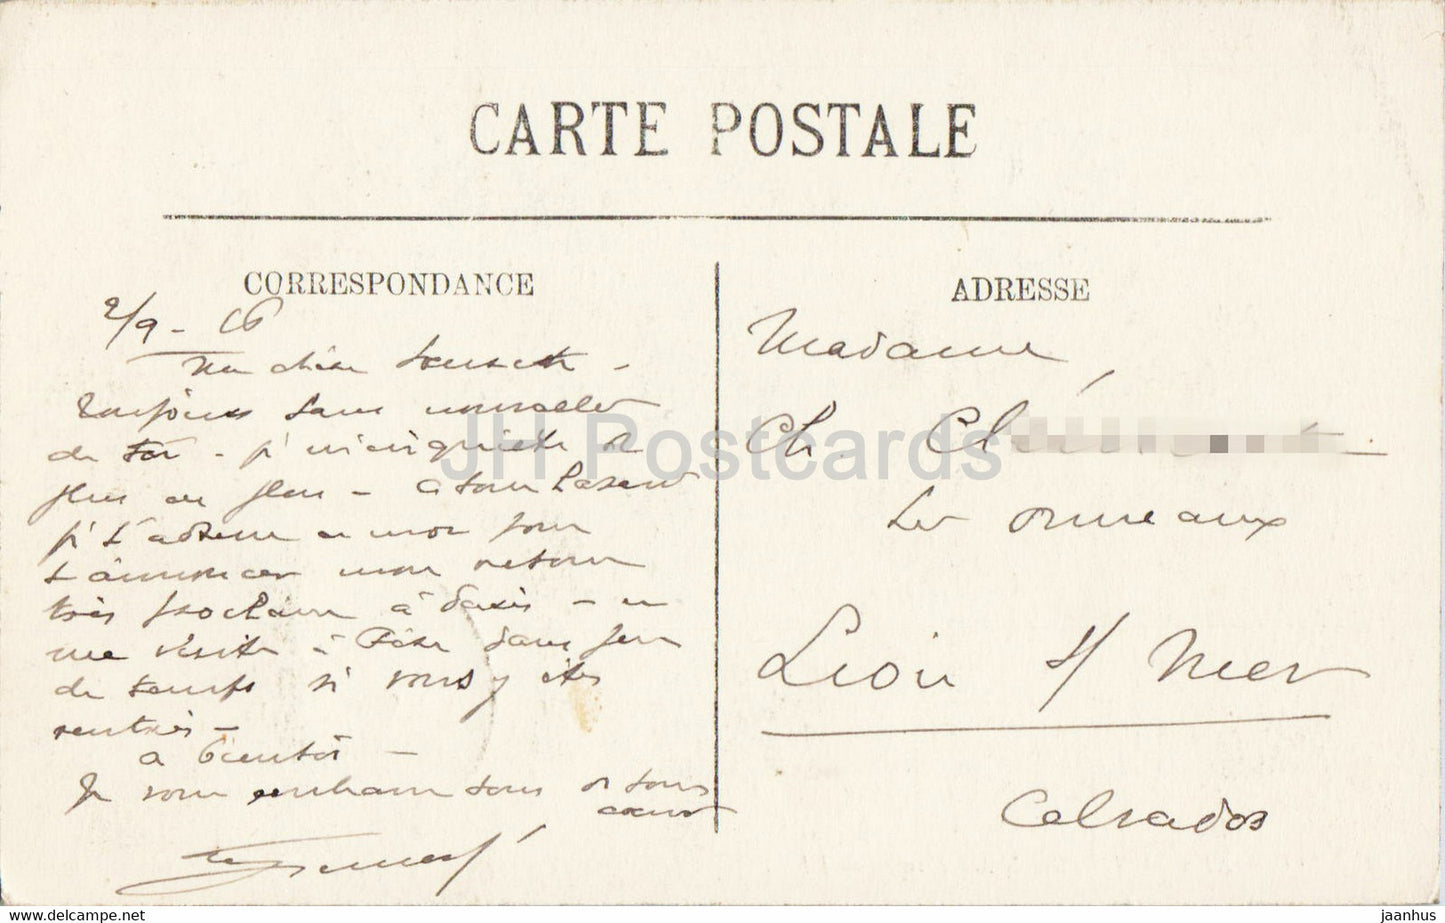 CARTE POSTALE
CORRESPONDANCE
ADRESSE
2/9 - 16
Ma chère
Toujours sans nouvelles
de toi - je m'inquiète de
plus en plus - à tout hasard
je t'adresse ce mot pour
t'annoncer mon retour
très prochain à Paris - et
ma visite à dans peu
de temps si vous y êtes
rentrés -
à bientôt -
Je vous embrasse tous de tout
coeur
Madame,
Ch. Clé
Les ormeaux
Lion s/ Mer
Calvados
JH Postcards
www.delcampe.net
jaanhus